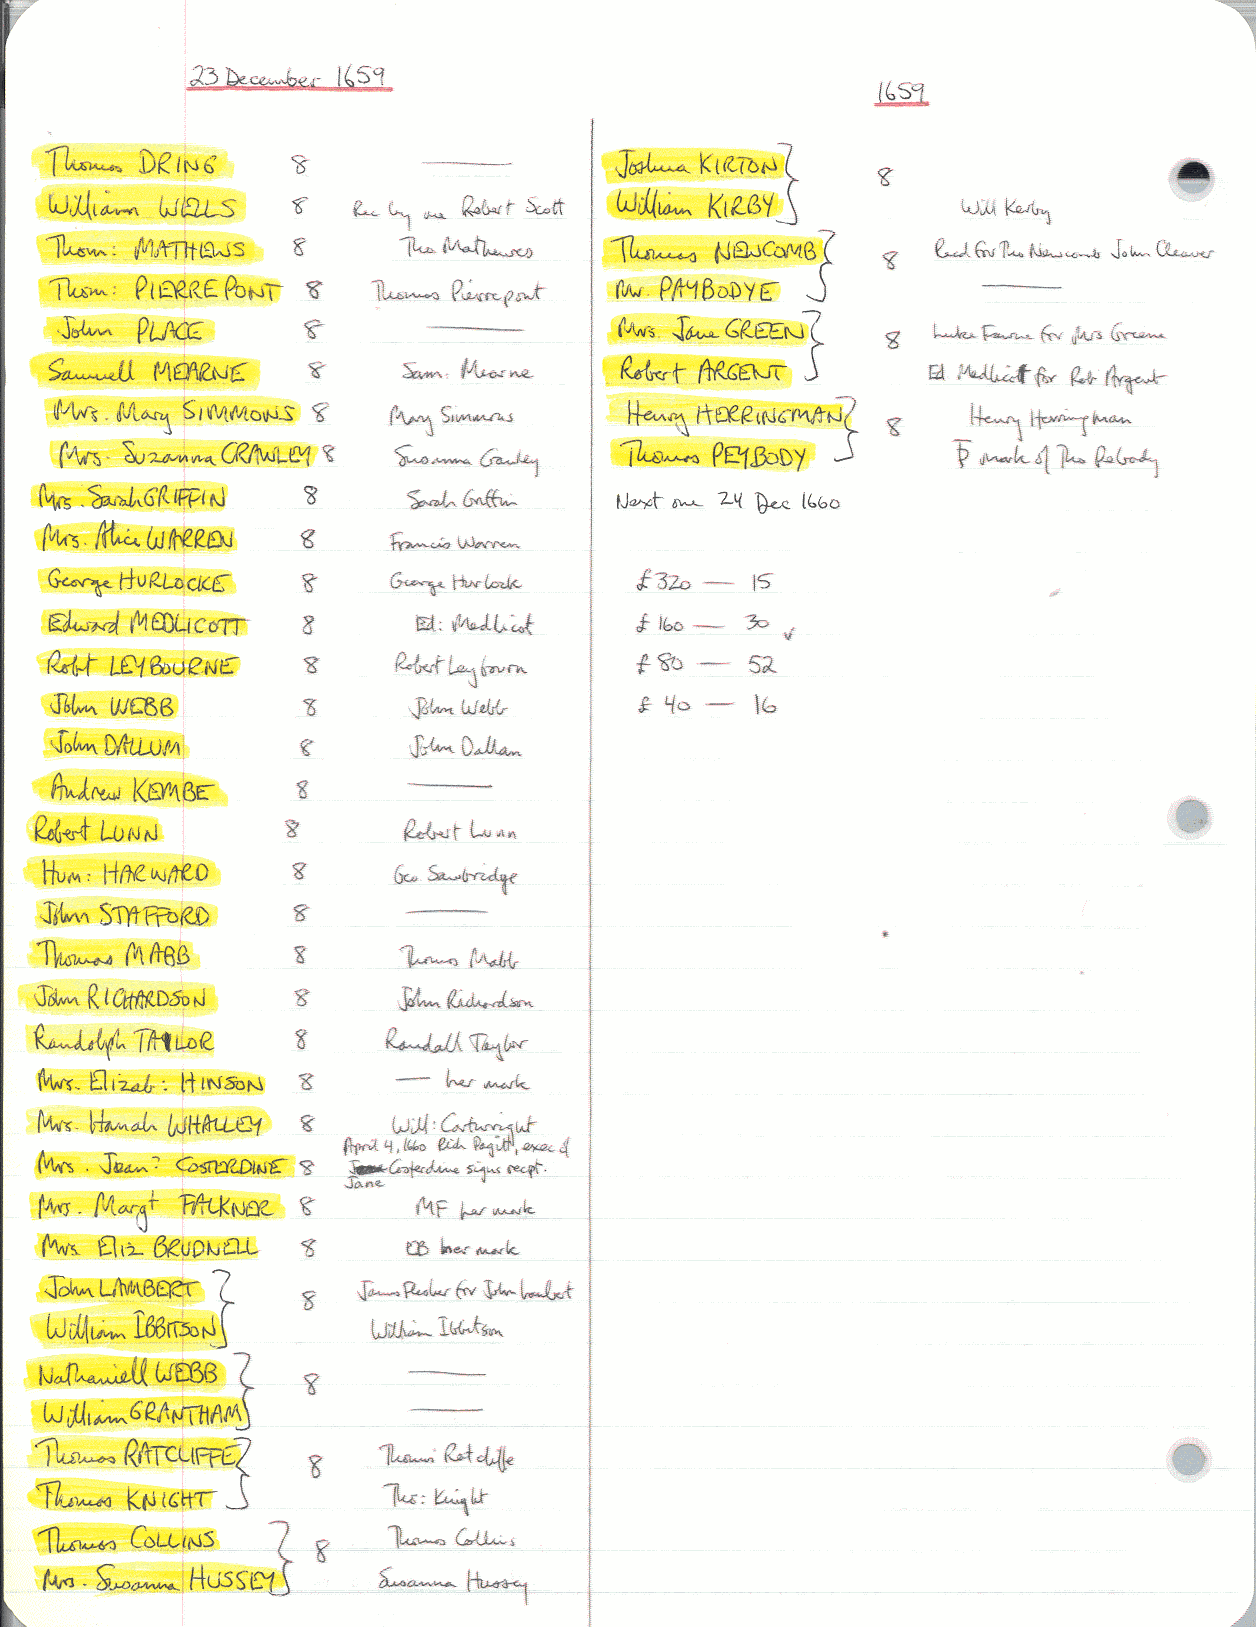 23 December 1659
Thomas DRING 8 —
William WELLS 8 Rec by me Robert Scott
Thom: MATHEWS 8 Tho Mathewes
Thom: PIERREPONT 8 Thomas Pierrepont
John PLACE 8 —
Samuell MEARNE 8 Sam: Mearne
Mrs. Mary SIMMONS 8 Mary Simmons
Mrs. Suzanna CRAWLEY 8 Susanna Crawley
Mrs. Sarah GRIFFIN 8 Sarah Griffin
Mrs. Alice WARREN 8 Francis Warren
George HURLOCKE 8 George Hurlock
Edward MEDLICOTT 8 Ed: Medlicot
Robt LEYBOURNE 8 Robert Leybourn
John WEBB 8 John Webb
John DALLUM 8 John Dallam
Andrew KEMBE 8 —
Robert LUNN 8 Robert Lunn
Hum: HARWARD 8 Geo Sawbridge
John STAFFORD 8 —
Thomas MABB 8 Thomas Mabb
John RICHARDSON 8 John Richardson
Randolph TAYLOR 8 Randall Taylor
Mrs. Elizab: HINSON 8 — her mark
Mrs. Hanah WHALLEY 8 Will: Cartwright
April 4, 1660 Rich Pagitt, exec of
Mrs. Jean? COSTERDINE 8 Costerdine signs recpt.
Jane
Mrs. Margt FALKNER 8 MF her mark
Mrs. Eliz BRUDNELL 8 EB her mark
John LAMBERT } 8 James Flesher for John Lambert
William IBBITSON William Ibbitson
Nathaniell WEBB } 8 —
William GRANTHAM —
Thomas RATCLIFFE } 8 Thomas Ratcliffe
Thomas KNIGHT Tho: Knight
Thomas COLLINS } 8 Thomas Collins
Mrs. Susanna HUSSEY Susanna Hussey
1659
Joshua KIRTON } 8
William KIRBY Will Kerby
Thomas NEWCOMB } 8 Recd for Tho Newcomb John Cleaver
Mr. PAYBODYE —
Mrs. Jane GREEN } 8 Luke Fawne for Mrs Greene
Robert ARGENT Ed Medlicott for Rob Argent
Henry HERRINGMAN } 8 Henry Herringman
Thomas PEYBODY P mark of Tho Pebody
Next one 24 Dec 1660
£320 — 15
£160 — 30 ✓
£80 — 52
£40 — 16